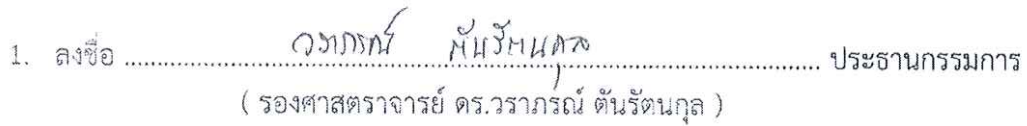 1. ลงชื่อ วราภรณ์ ตันรัตนกุล ประธานกรรมการ
( รองศาสตราจารย์ ดร.วราภรุณ์ ตันรัตนกุล )